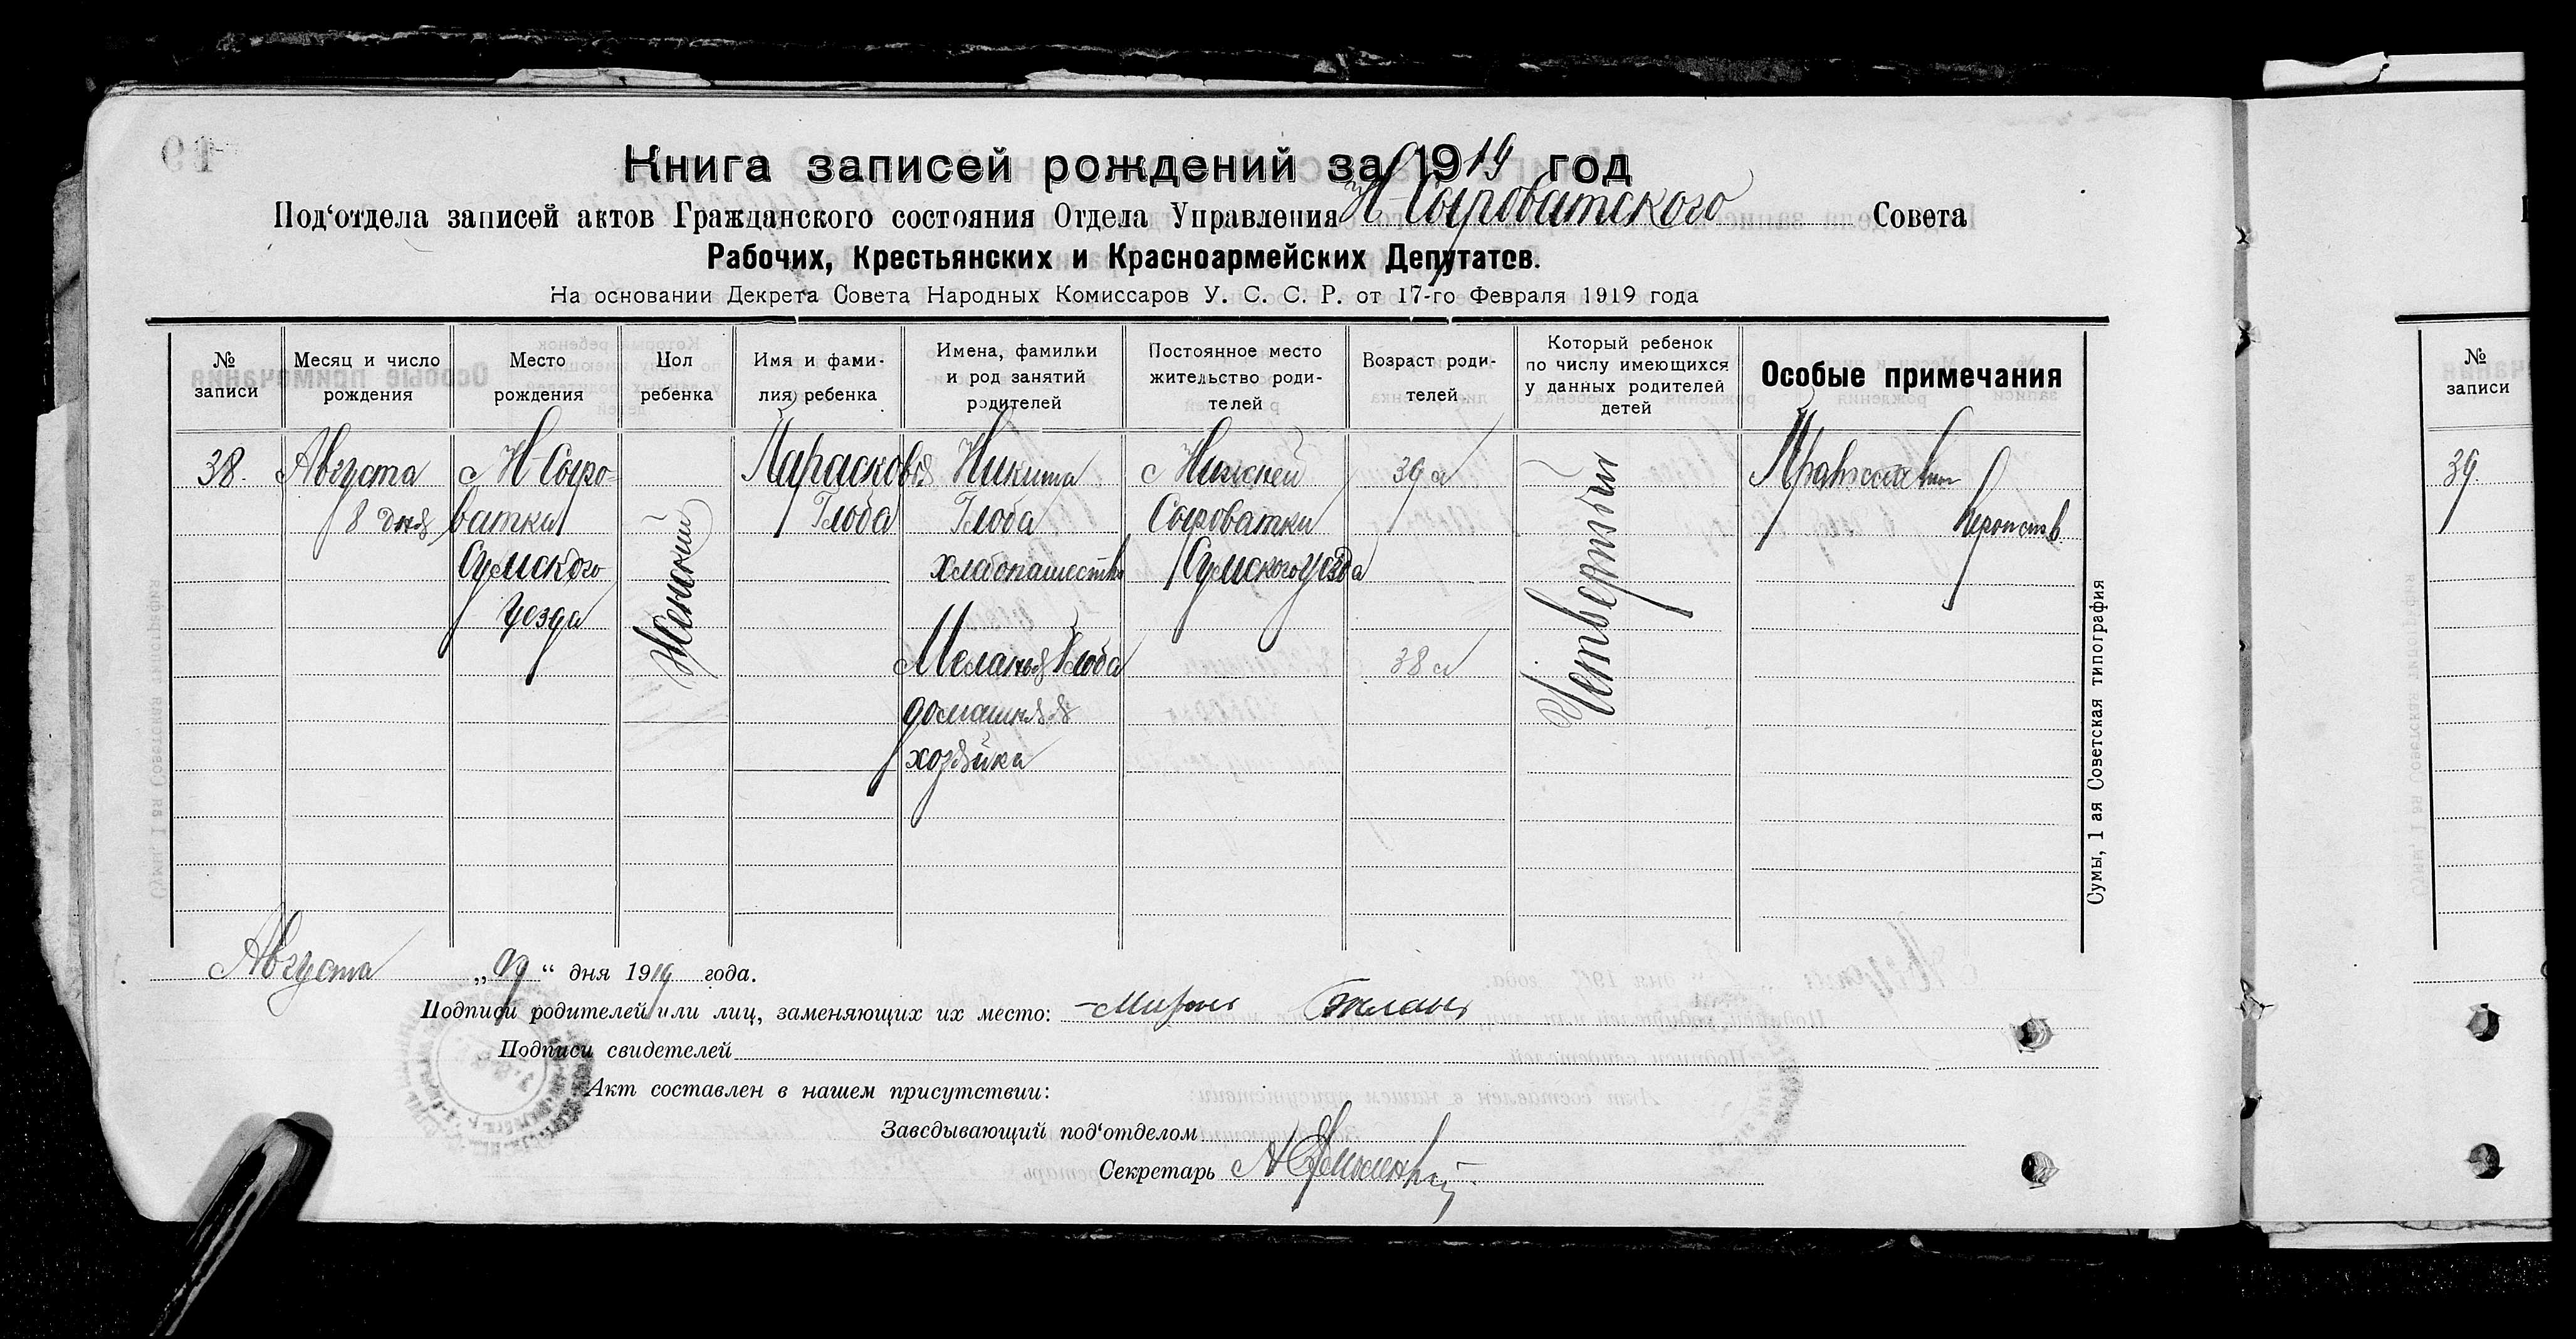 Книга записей рождений за 1919 год
Под‘отдела записей актов Гражданского состояния Отдела Управления Н-Сыроватского Совета
Рабочих, Крестьянских и Красноармейских Депутатов.
На основании Декрета Совета Народных Комиссаров У. С. С. Р. от 17-го Февраля 1919 года
№ записи
Месяц и число рождения
Место рождения
Пол ребенка
Имя и фамилия ребенка
Имена, фамилии и род занятий родителей
Постоянное место жительство родителей
Возраст родителей
Который ребенок по числу имеющихся у данных родителей детей
Особые примечания
38.
Августа
8 дня
с Н-Сыро=
ватки
Сумского
уезда
Женский
Парасковия
Глоба
Никита
Глоба
хлебопашество
Мелания Глоба
домашняя
хозяйка
с Нижней
Сыроватки
Сумского уезда
39 л
38 л
Четвертый
Сумы, 1 ая Советская типография
Августа „09“ дня 1919 года.
Подписи родителей или лиц, заменяющих их место:
Подписи свидетелей
Акт составлен в нашем присутствии:
Заведывающий под‘отделом
Секретарь
№
записи
39